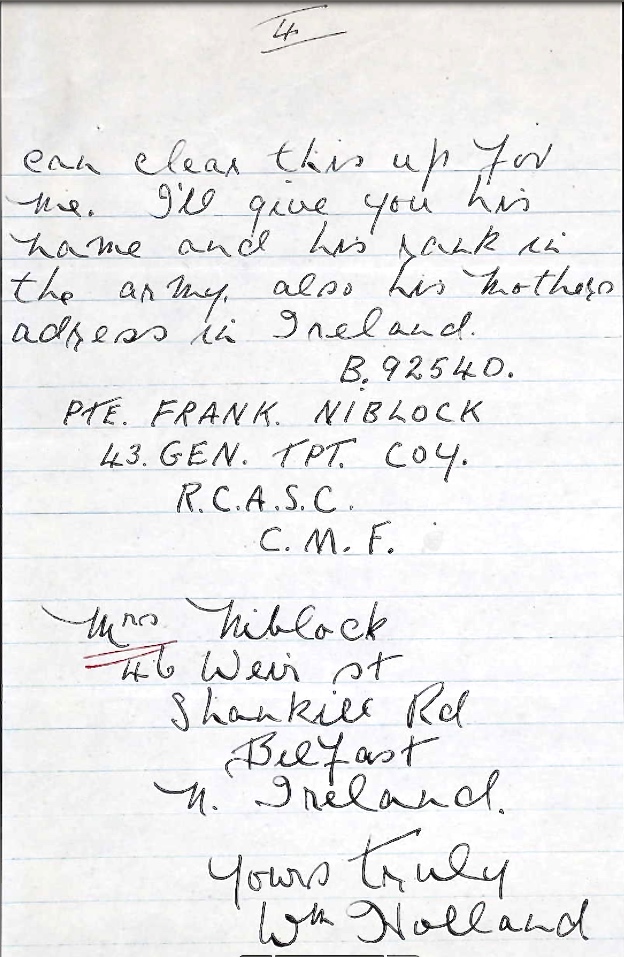 4
can clear this up for
me. I'll give you his
name and his rank in
the army. also his mothers
adress in Ireland.
B. 92540.
PTE. FRANK. NIBLOCK
43. GEN. TPT. COY.
R.C.A.S.C.
C. M. F.
Mrs Niblock
46 Weir st
Shankill Rd
Belfast
N. Ireland.
Yours truly
Wm Holland